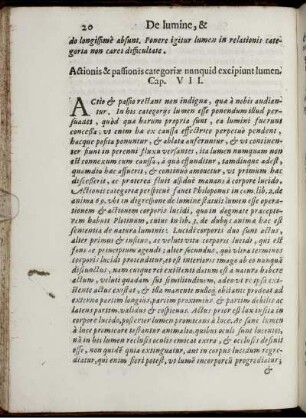 20 De lumine, &
do longissimè absunt. Ponere igitur lumen in relationis cate-
goria non caret difficultate.
Actionis & passionis categoriæ nunquid excipiunt lumen.
Cap. VII.
Actio & passio restant non indigna, quæ à nobis audian-
tur. In hac categoria lumen esse ponendum illud per-
suadet, quòd qua harum propria sunt, ea lumini fuerunt
concessa: vt enim hæ ex caussa effectrice perpetuò pendent,
hacque posita ponuntur, & ablata auferuntur, & vt continen-
ter sunt in perenni fluxu versantes, ita lumen numquam non
est connexum cum caussa, à qua effunditur, tamdiuque adest,
quamdiu hæc
discesserit, ac protenus fluit assidua manans à corpore lucido.
Actionis categoria perficiunt sanè Philoponus in com. lib. 2. de
anima & 69. vbi in digressione de lumine statuit lumen esse opera-
tionem & actionem corporis lucidi, quam in dogmate præcepto-
rem habuit Plotinum,
sententia de natura luminis: Lucidi corporis duo sunt actus,
alter primus & insitus, ac veluti vita corporis lucidi, qui est
fons & præceptum agendi, alter secundus, qui virtute terminos
corporis lucidi procedit, ac est interioris imago ab eo nunquam
disiunctus, nam cuique rei existenti datum est à natura habere
actum, veluti quoddam sui similitudinem, adeo vt re ipsa exi-
stente actus existat, & illa manente nulla obliquitate prodeat ad
externa partim longiùs, partim proximiùs & partim debiles ac
latentes partim validos & conspicuos. Actus prior est lux insita in
corpore lucido, posterior lumen promicans à luce. Ac sanè lumen
à luce promicare testantur animalia, quibus oculi sunt lucentes,
nã in his lumen lucens oculis emicat extra, & occlusis desinit
esse, non quidẽ quia extinguatur, aut in corpus lucidum regre-
diatur, qui enim fieri potest, vt lumẽ incorporeũ progrediatur;
&